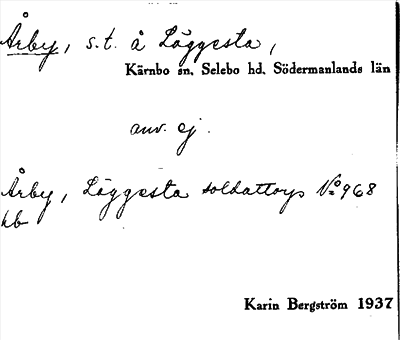 Årby, s.t. å Läggesta,
Kärnbo sn, Selebo hd, Södermanlands län
anv. ej.
Årby, Läggesta soldattorp No 968
hb
Karin Bergström 1937